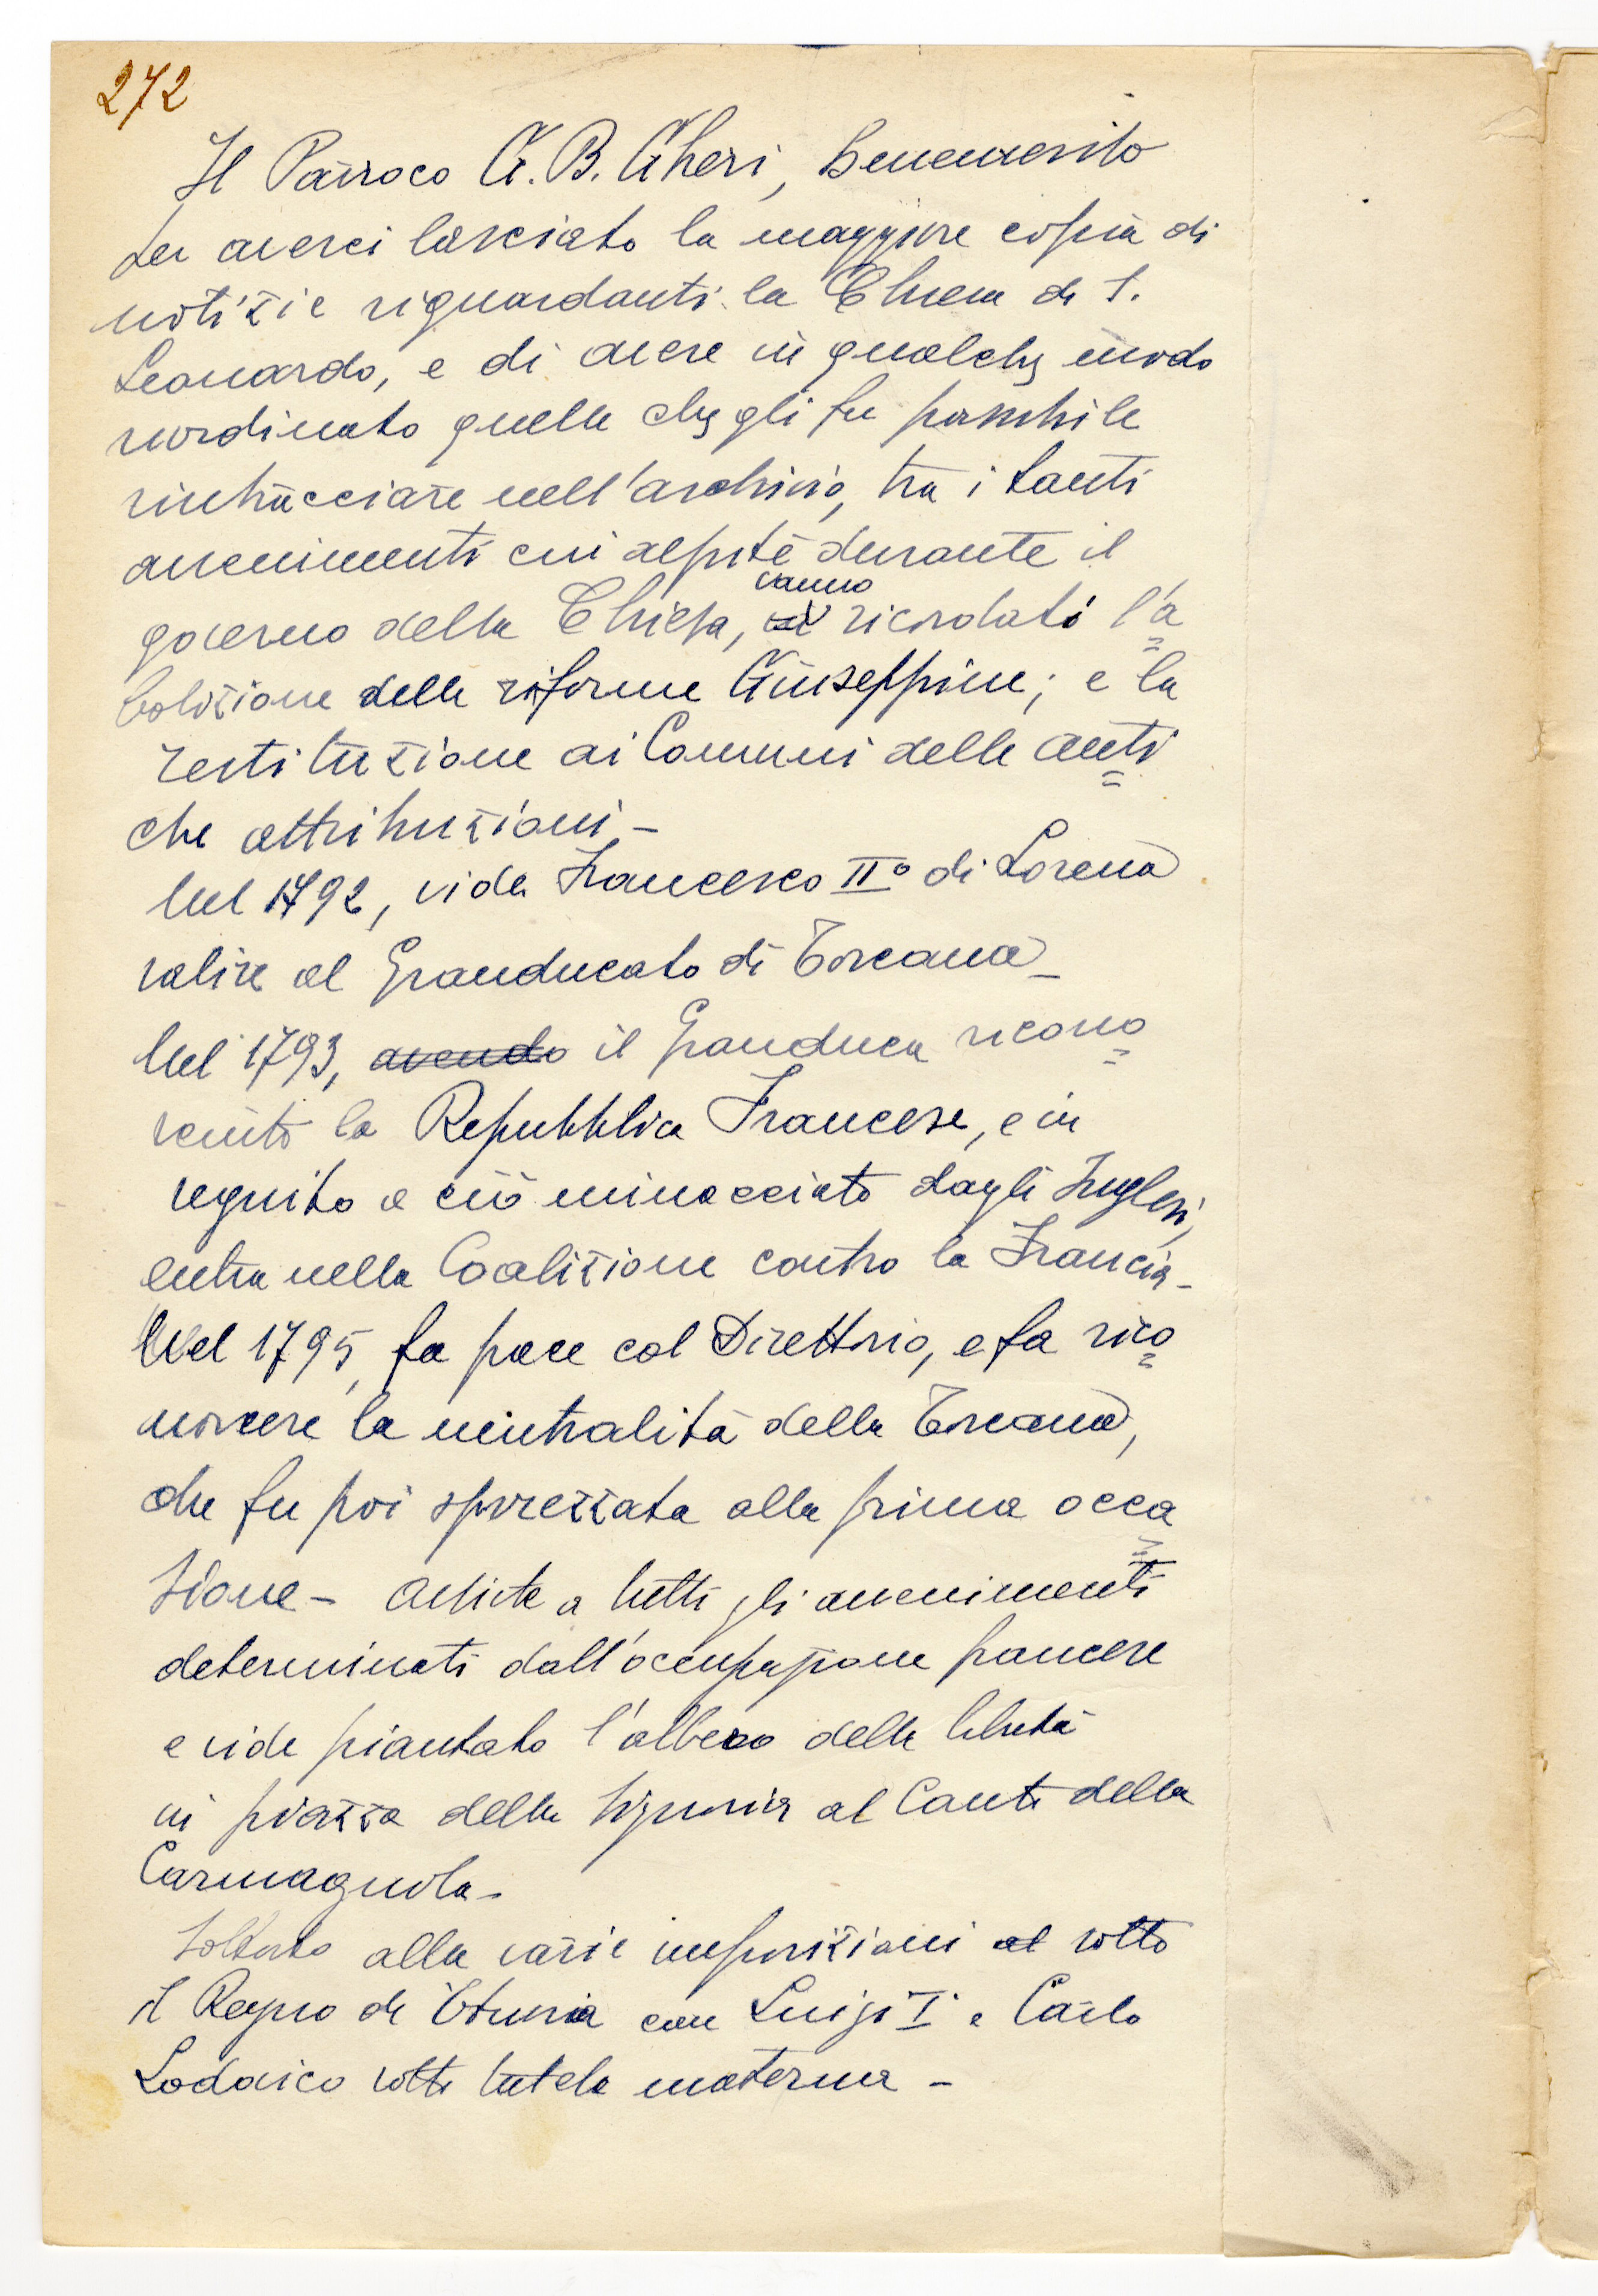 272
Il Parroco G. B. Gheri, benemerito
per averci lasciato la maggiore copia di
notizie riguardanti la Chiesa di S.
Leonardo, e di avere in qualche modo
riordinato quelle che gli fu possibile
rintracciare nell'archivio, tra i tanti
avvenimenti cui assisté durante il
governo della Chiesa, vanno ricordati l'a=
bolizione delle riforme Giuseppine; e la
restituzione ai Comuni delle anti=
che attribuzioni -
Nel 1792, vide Francesco II° di Lorena
salire al Granducato di Toscana -
Nel 1793, avendo il Granduca ricono=
sciuto la Repubblica Francese, e in
seguito a ciò minacciato dagli Inglesi,
entra nella Coalizione contro la Francia -
Nel 1795, fa pace col Direttorio, e fa rico=
noscere la neutralità della Toscana,
che fu poi sprezzata alla prima occa=
sione - Assiste a tutti gli avvenimenti
determinati dall'occupazione francese
e vide piantato l'albero della libertà
in piazza della Signoria al Canto della
Carmagnola -
alle varie imposizioni sotto
il Regno di Etruria con Luigi I° e Carlo
Lodovico sotto tutela materna -